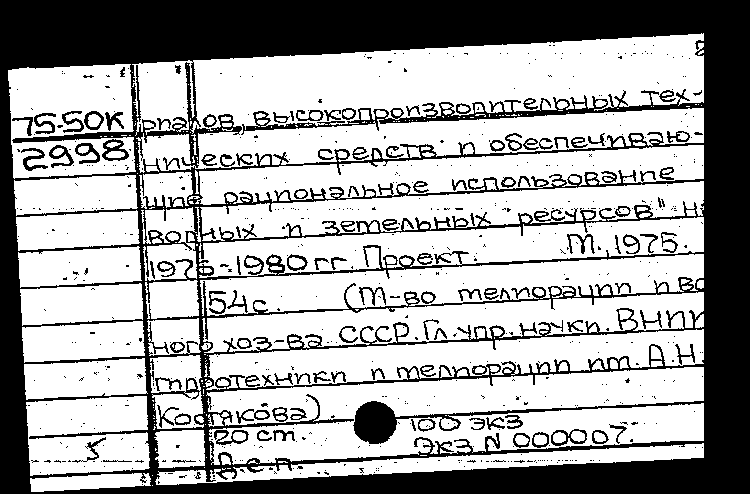 75-50К риалов, высокопроизводительных тех-
2998 нических средств и обеспечиваю-
щие рациональное использование
водных и земельных ресурсов" на
1976-1980 гг. Проект. М., 1975.
54 с. (М-во мелиорации и вод
ного хоз-ва СССР. Гл. упр. науки. ВНИИ
гидротехники и мелиорации им. А.Н.
Костякова).
20 см. 100 экз
5 Экз N 000007.
Д.е.п.